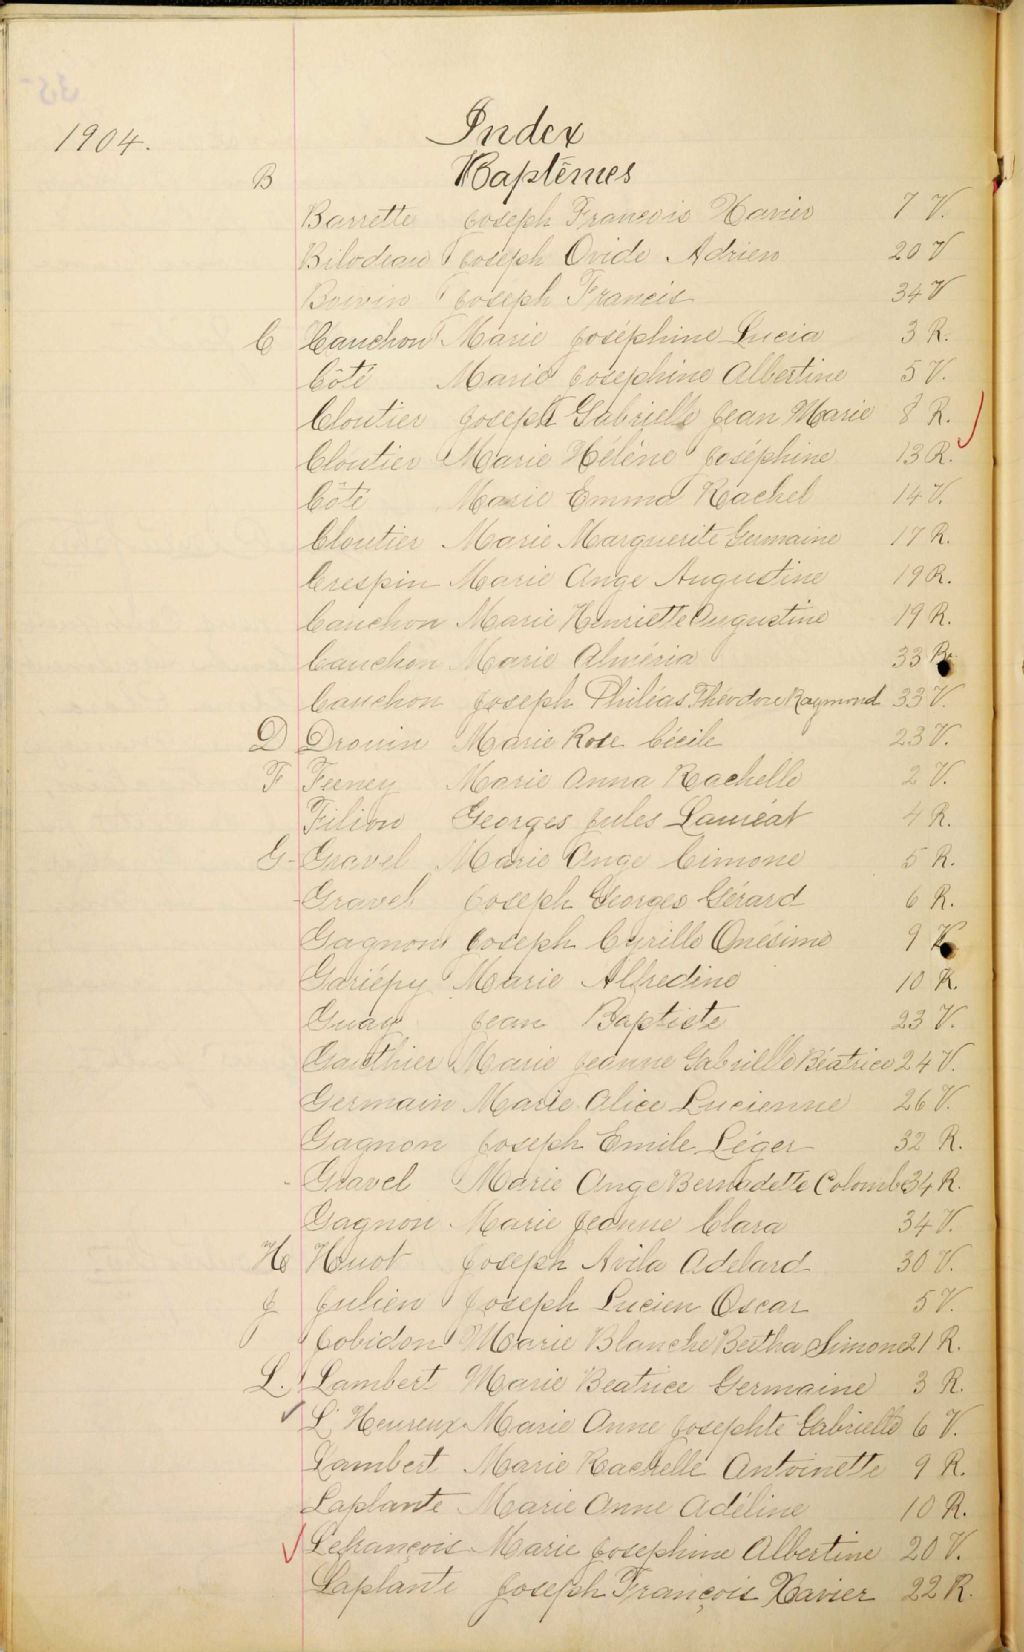 1904.
Index
Baptêmes
B
Barrette Joseph François Xavier 7 V.
Bilodeau Joseph Ovide Adrien 20 V
Boivin Joseph Francis 34 V
C Cauchon Marie Joséphine Lucia 3 R.
Côté Marie Joséphine Albertine 5 V.
Cloutier Joseph Gabrielle Jean Marie 8 R.
Cloutier Marie Hélène Joséphine 13 R.
Côté Marie Emma Rachel 14 V.
Cloutier Marie Marguerite Germaine 17 R.
Crespin Marie Ange Augustine 19 R.
Cauchon Marie Henriette Augustine 19 R.
Cauchon Marie Alméria 33 R.
Cauchon Joseph Philéas Théodore Raymond 33 V.
D Drouin Marie Rose Cécile 23 V.
F Feeney Marie Anna Rachelle 2 V.
Filion Georges Jules Lauréat 4 R.
G- Gravel Marie Ange Cimone 5 R.
-Gravel Joseph Georges Gérard 6 R.
Gagnon Joseph Cyrille Onésime 9 V.
Gariépy Marie Alfredine 10 R.
Guay Jean Baptiste 23 V.
Gauthier Marie Jeanne Gabrielle Béatrice 24 V.
Germain Marie Alice Lucienne 26 V.
Gagnon Joseph Emile Léger 32 R.
- Gravel Marie Ange Bernadette Colombe 34 R.
Gagnon Marie Jeanne Clara 34 V.
H Huot Joseph Avila Adelard 30 V.
J Julien Joseph Lucien Oscar 5 V.
Jobidon Marie Blanche Bertha Simone 21 R.
L. Lambert Marie Beatrice Germaine 3 R.
L'Heureux Marie Anne Josephte Gabrielle 6 V.
Lambert Marie Rachelle Antoinette 9 R.
Laplante Marie Anne Adéline 10 R.
Lefrançois Marie Josephine Albertine 20 V.
Laplante Joseph François Xavier 22 R.